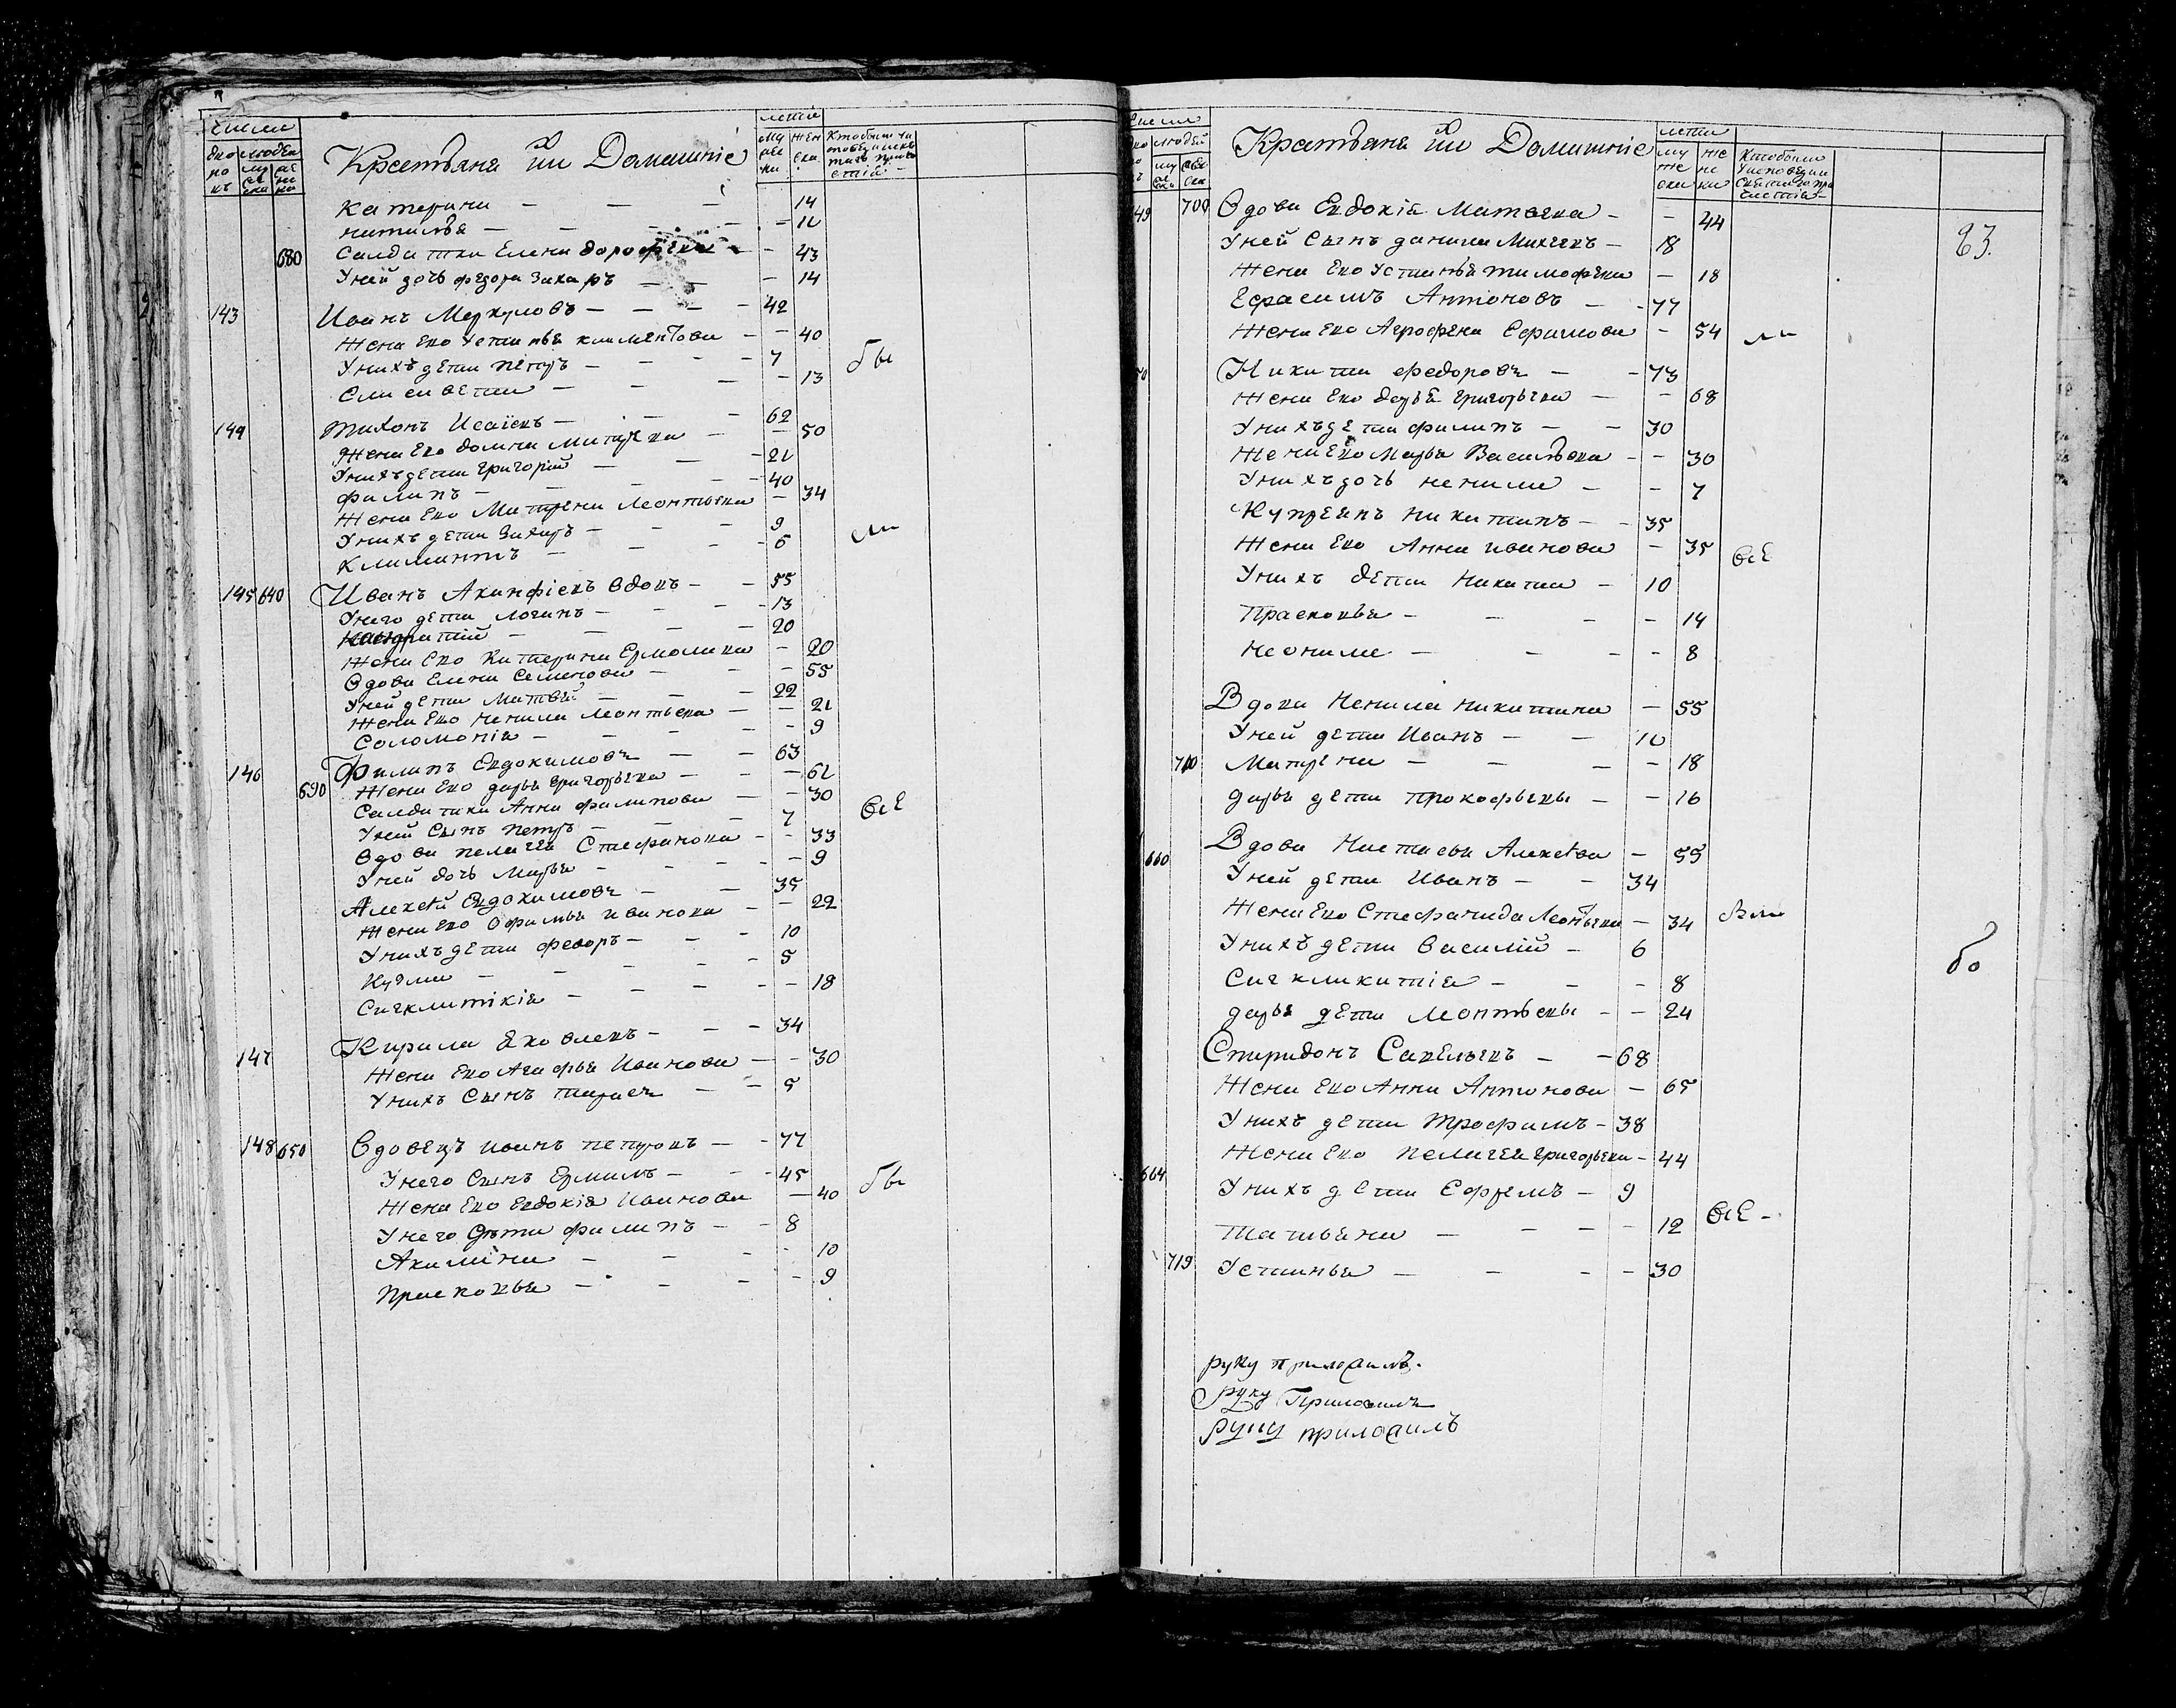 Крестьяна Их Домашніе
Катерина — 14
наталья —
680 Салдатка Елена дорофѣева — 43
Уней дочь федора Захаръ — 14
143 Иванъ Меркуловъ — 42
жена Ево Устинья климентова — 40
Унихъ дети петръ — 7 бы
Елисавета — 13
144 тихонъ Исаіевъ — 62
жена Ево домна — 50
Унихъ дети григорій — 21
филипъ — 40
жена Ево Матрена Леонтьева — 34
Унихъ дети Захаръ — 9
климантъ — 6
145 640 Иванъ Акинфіевъ вдовъ — 55
Унего дети логинъ — 13
20
жена Ево катерина Ермолаева — 20
вдова Елена Семенова — 55
Уней дети Матвей — 22
жена Ево ненила Леонтьева — 21
Соломоніа — 9
146 Филипъ Евдокимовъ — 63
690 жена Ево дарья григорьева — 61
Салдатка Анна филипова — 30
Уней Сынъ петръ — 7 всѣ
вдова пелагея Стефанова — 33
Уней дочь Марья — 9
Алексѣй Евдокимовъ — 35
жена Ево Офимья иванова — 22
Унихъ дети федоръ — 10
Кузма — 5
Сигклитікіа — 18
147 Кирила Яковлевъ — 34
жена Ево Агафья Иванова — 30
Унихъ Сынъ тарасъ — 5
148 650 вдовецъ иванъ петровъ — 77
Унего Сынъ Ермилъ — 45
жена Ево Евдокіа Иванова — 40 бы
Унего дѣти филипъ — 8
Акилина — 10
прасковья — 9
Крестьяна Их Домашніе
49 700 вдова Евдокіа Матвева — 44
Уней Сынъ данила Михеевъ — 18
83.
жена Ево Устинья тимофева — 18
Ефрасимъ Антоновъ — 77
жена Ево Агрофена Ефимова — 54
Никита федоровъ — 73
жена Ево дарья григорьева — 68
Унихъ дети филипъ — 30
жена Ево Марья Васильева — 30
Унихъ дочь ненила — 7
Купреянъ никитинъ — 35
жена Ево Анна иванова — 35 всѣ
Унихъ дети никита — 10
Прасковья — 14
неонила — 8
Вдова Ненила никитина — 55
Уней дети Иванъ — 10
710 Матрена — 18
дарья дети прокофьевы — 16
660 Вдова Настасья Алексѣва — 55
Уней дети Иванъ — 34
жена Ево Стефанида Леонтьева — 34
Унихъ дети василий — 6
Сигкликитіа — 8
дарья дети Леонтьевы — 24
бо
Спиридонъ Савельевъ — 68
жена Ево Анна Антонова — 65
Унихъ дети трофимъ — 38
жена Ево пелагея григорьева — 44
664 Унихъ дети Ефремъ — 9
татьяна — 12 всѣ —
719 Устинья — 30
руку приложилъ.
руку Приложилъ
руку приложилъ